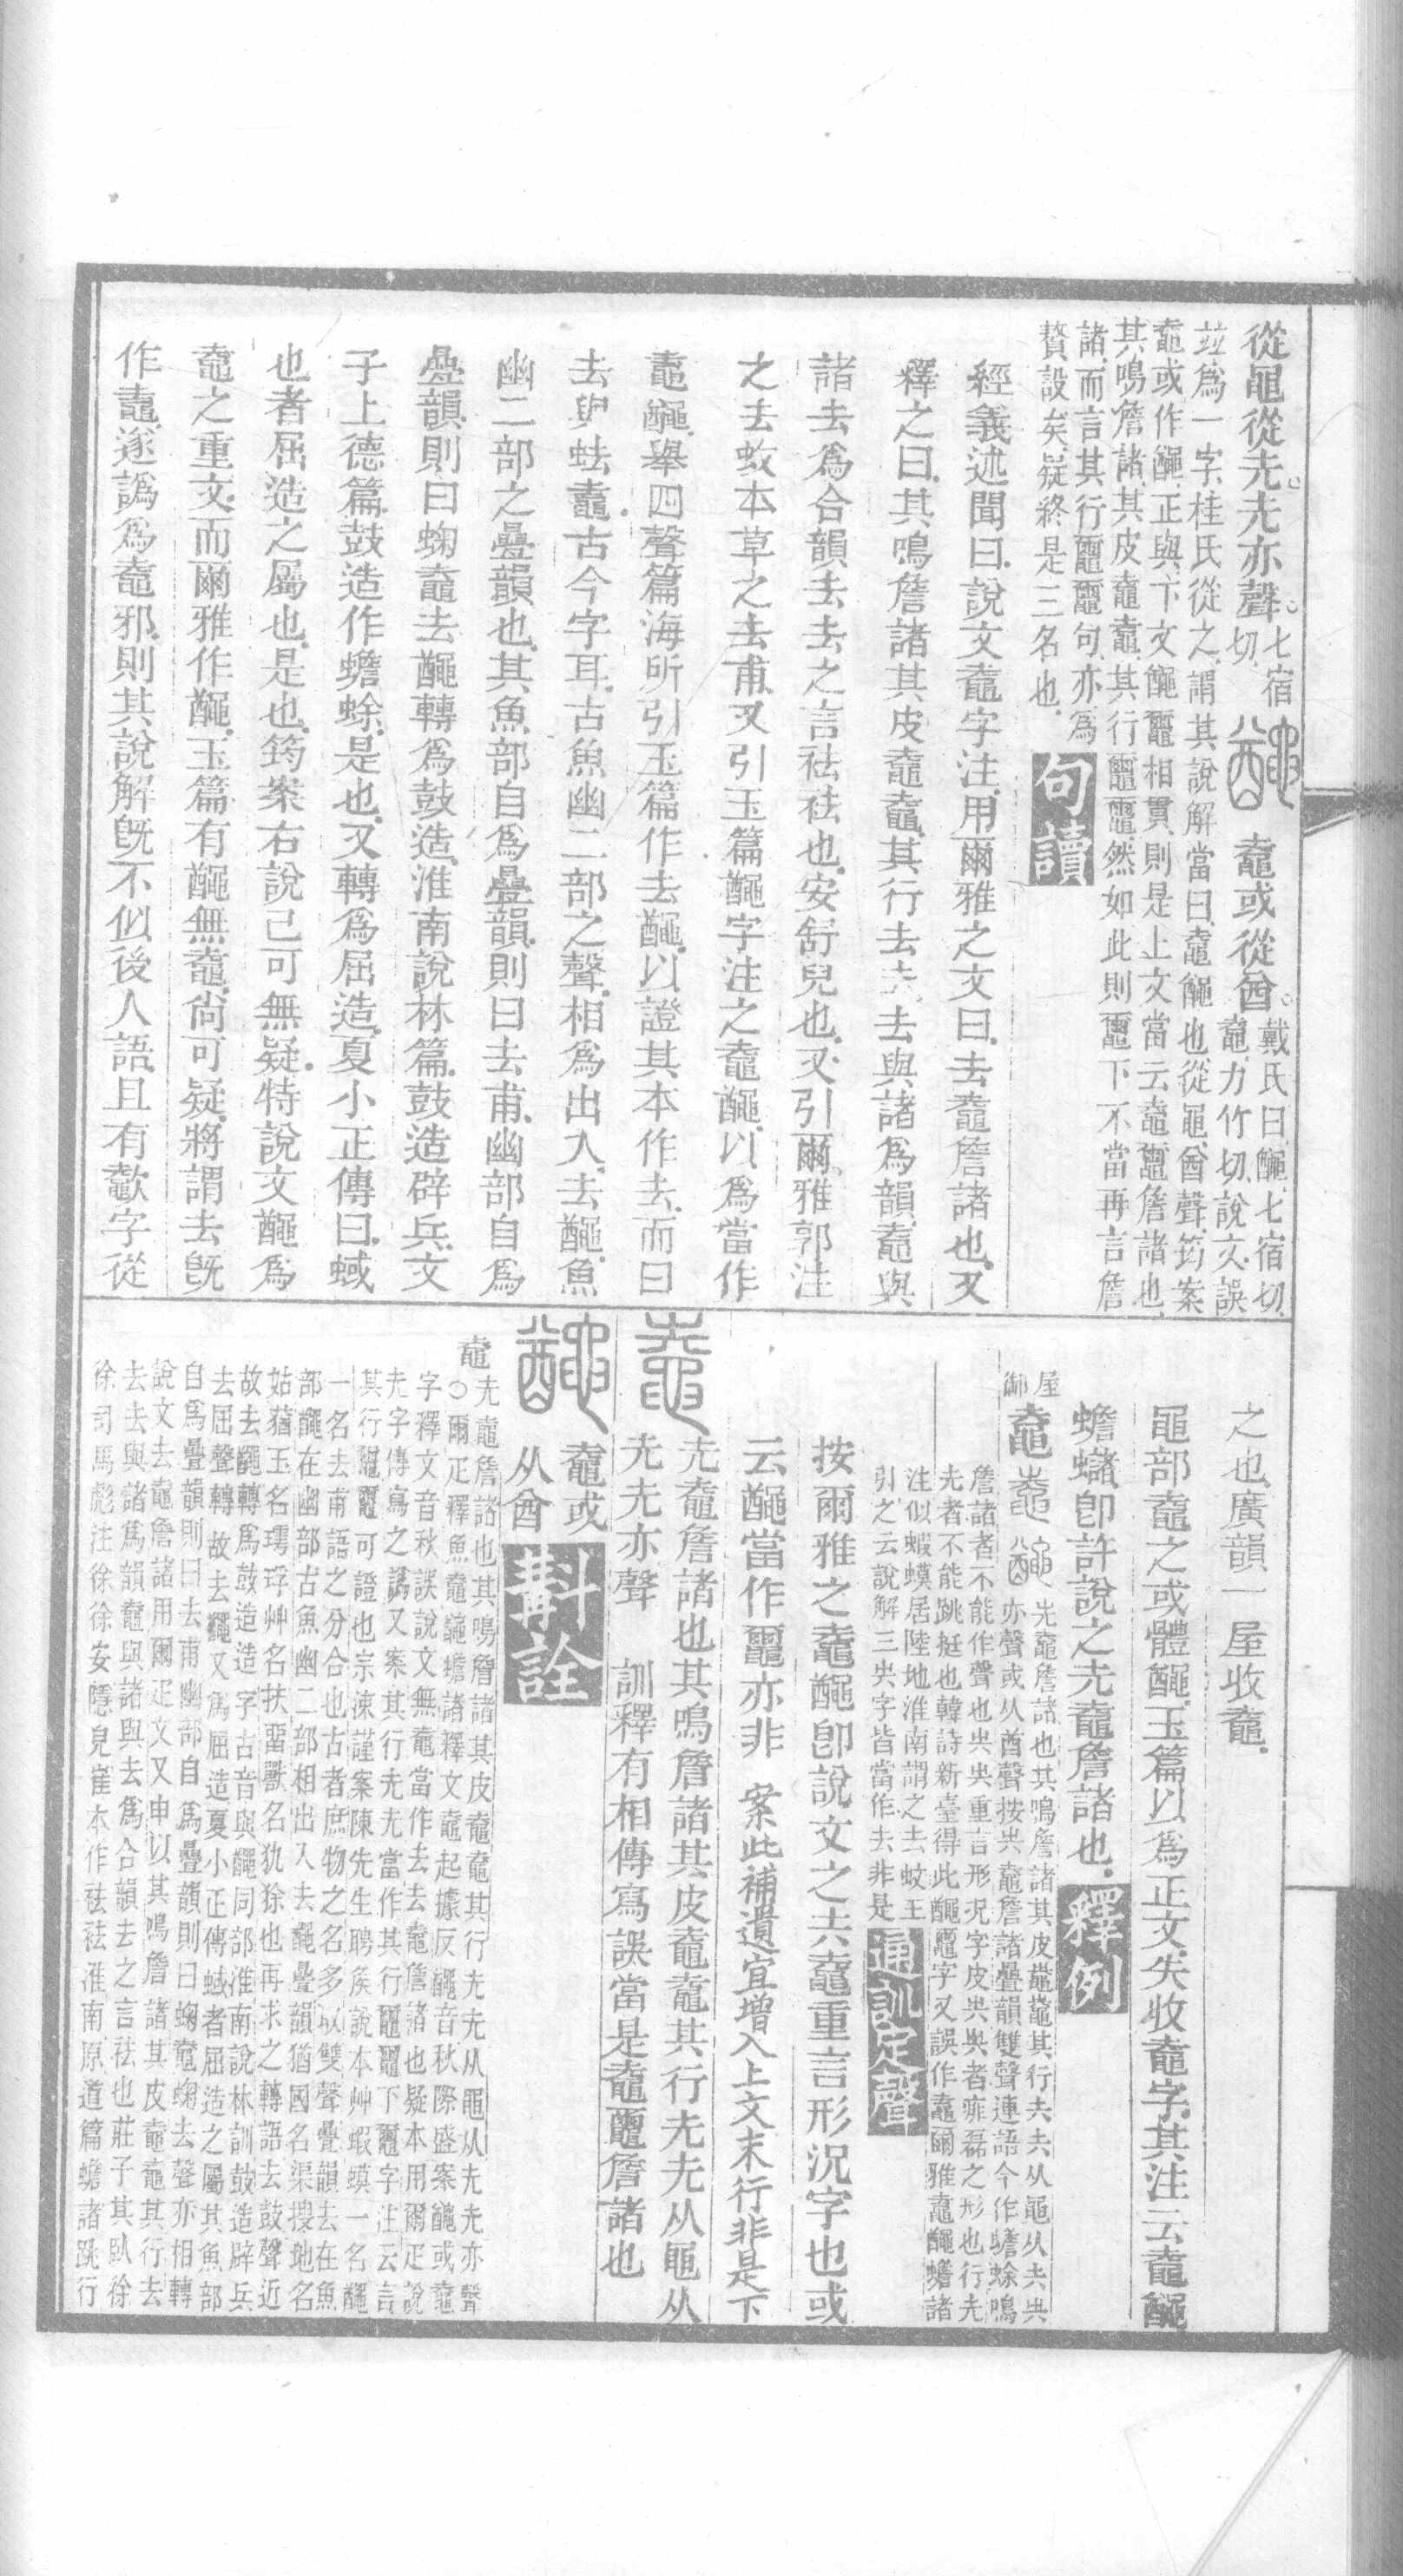 從黽從圥圥亦聲七宿切䵸𪓰或從酋戴氏曰䵸七宿切
𪓰力竹切說文誤
竝為一字桂氏從之謂其說解當曰𪓰䵸也從黽酋聲筠案
𪓰或作䵸正與下文䵸鼀相貫則是上文當云𪓰鼀詹諸也
其鳴詹諸其皮𪓰𪓰其行鼀鼀然如此則鼀下不當再言詹
諸而言其行鼀鼀句亦為
贅設矣疑終是三名也句讀
經義述聞曰說文𪓰字注用爾雅之文曰去𪓰詹諸也又
釋之曰其鳴詹諸其皮𪓰𪓰其行去去去與諸為韻𪓰與
諸去為合韻去去之言祛祛也安舒皃也又引爾雅郭注
之去蚥本草之去甫又引玉篇䵸字注之𪓰䵸以為當作
鼀䵸舉四聲篇海所引玉篇作去䵸以證其本作去而曰
去與蚨鼀古今字耳古魚幽二部之聲相為出入去䵸魚
幽二部之疊韻也其魚部自為疊韻則曰去甫幽部自為
疊韻則曰蜠𪓰去䵸轉為鼓造淮南說林篇鼓造辟兵文
子上德篇鼓造作蟾蜍是也又轉為屈造夏小正傳曰蜮
也者屈造之屬也是也筠案右說已可無疑特說文䵸為
𪓰之重文而爾雅作䵸玉篇有䵸無𪓰尚可疑將謂去既
作鼀遂譌為𪓰邪則其說解旣不似後人語且有歗字從
之也廣韻一屋收𪓰
黽部𪓰之或體䵸玉篇以為正文失收𪓰字其注云𪓰䵸
蟾蠩卽許說之圥𪓰詹諸也釋例
屋
御𪓰
圥𪓰詹諸也其鳴詹諸其皮𪓰𪓰其行圥圥从黽从圥圥
亦聲或从酋聲按圥𪓰詹諸疊韻雙聲連語今作蟾蜍鳴
詹諸者不能作聲也圥圥重言形況字皮圥圥者痱磊之形也行圥
圥者不能跳挺也韓詩新臺得此䵸鼀字又誤作鼀爾雅鼀䵸蟾諸
注似蝦蟆居陸地淮南謂之去蚥王
引之云說解三圥字皆當作去非是通訓定聲
按爾雅之鼀䵸卽說文之圥𪓰重言形況字也或
云䵸當作鼀亦非　案此補遺宜增入上文末行非是下
圥𪓰詹諸也其鳴詹諸其皮𪓰𪓰其行圥圥从黽从
圥圥亦聲　訓釋有相傳寫誤當是𪓰鼀詹諸也
𪓰或
从酋斠詮
𪓰圥𪓰詹諸也其鳴詹諸其皮𪓰𪓰其行圥圥从黽从圥圥亦聲
○爾疋釋魚𪓰䵸蟾諸釋文𪓰起據反䵸音秋際盛案䵸或𪓰
字釋文音秋誤說文無𪓰當作去去𪓰詹諸也疑本用爾疋說
圥字傳寫之譌又案其行圥圥當作其行鼀鼀下鼀字注云言
其行鼀鼀可證也宗涑謹案陳先生聘侯說本艸蝦蟆一名䵸
一名去甫語之分合也古者庶物之名多取雙聲疊韻去在魚
部䵸在幽部古魚幽二部相出入去䵸疊韻猶國名渠搜地名
姑蕕玉名璕玗艸名扶𦽏獸名犰狳也再求之轉語去鼓聲近
故去䵸轉為鼓造造字古音與䵸同部淮南說林訓鼓造辟兵
去屈聲轉故去䵸又為屈造夏小正傳蜮者屈造之屬其魚部
自為疊韻則曰去甫幽部自為疊韻則曰蜠𪓰蜠去聲亦相轉
說文去𪓰詹諸用爾疋文又申以其鳴詹諸其皮𪓰𪓰其行去
去去與諸為韻𪓰與諸與去為合韻去之言祛也莊子其臥徐
徐司馬彪注徐徐安隱皃崔本作祛祛淮南原道篇蟾諸跳行